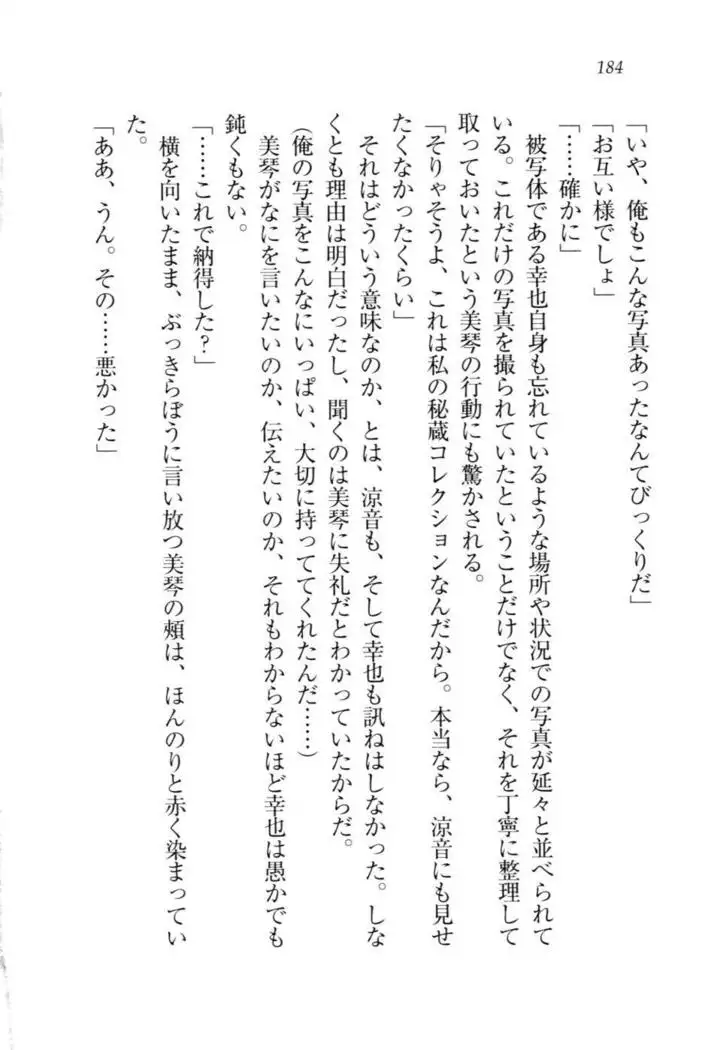 184
「いや、俺もこんな写真あったなんてびっくりだ」
「お互い様でしょ」
「……確かに」
被写体である幸也自身も忘れているような場所や状況での写真が延々と並べられて
いる。これだけの写真を撮られていたということだけでなく、それを丁寧に整理して
取っておいたという美琴の行動にも驚かされる。
「そりゃそうよ、これは私の秘蔵コレクションなんだから。本当なら、涼音にも見せ
たくなかったくらい」
それはどういう意味なのか、とは、涼音も、そして幸也も訊ねはしなかった。しな
くとも理由は明白だったし、聞くのは美琴に失礼だとわかっていたからだ。
(俺の写真をこんなにいっぱい、大切に持っててくれたんだ……)
美琴がなにを言いたいのか、伝えたいのか、それもわからないほど幸也は愚かでも
鈍くもない。
「……これで納得した?」
横を向いたまま、ぶっきらぼうに言い放つ美琴の頰は、ほんのりと赤く染まってい
た。
「ああ、うん。その……悪かった」